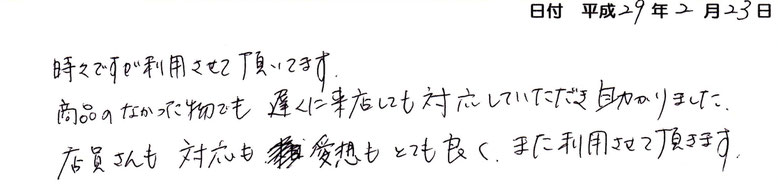 日付 平成29年2月23日
時々ですが利用させて頂いてます.
商品のなかった物でも 遅くに来店しても対応していただき助かりました.
店員さんも 対応も 愛想も とても良く、また利用させて頂きます.